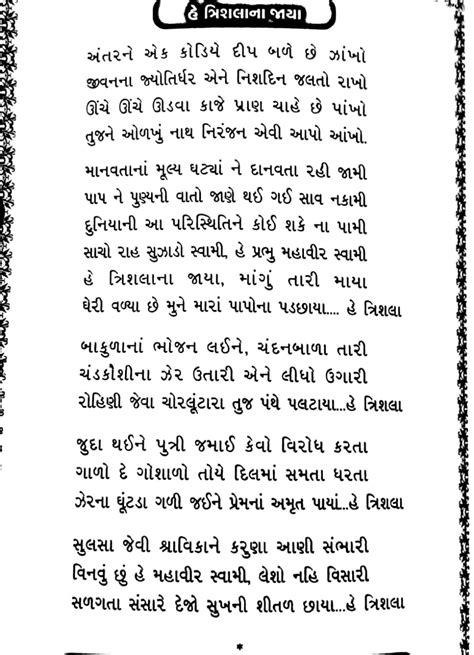 હે ત્રિશલાના જાયા
અંતરને એક કોડિયે દીપ બળે છે ઝાંખો
જીવનના જ્યોતિર્ધર એને નિશદિન જલતો રાખો
ઊંચે ઊંચે ઊડવા કાજે પ્રાણ ચાહે છે પાંખો
તુજને ઓળખું નાથ નિરંજન એવી આપો આંખો.
માનવતાનાં મૂલ્ય ઘટ્યાં ને દાનવતા રહી જામી
પાપ ને પુણ્યની વાતો જાણે થઈ ગઈ સાવ નકામી
દુનિયાની આ પરિસ્થિતિને કોઈ શકે ના પામી
સાચો રાહ સુઝાડો સ્વામી, હે પ્રભુ મહાવીર સ્વામી
હે ત્રિશલાના જાયા, માંગું તારી માયા
ઘેરી વળ્યા છે મુને મારાં પાપોના પડછાયા.... હે ત્રિશલા
બાકુળાનાં ભોજન લઈને, ચંદનબાળા તારી
ચંડકૌશીના ઝેર ઉતારી એને લીધો ઉગારી
રોહિણી જેવા ચોરલૂંટારા તુજ પંથે પલટાયા...હે ત્રિશલા
જુદા થઈને પુત્રી જમાઈ કેવો વિરોધ કરતા
ગાળો દે ગોશાળો તોયે દિલમાં સમતા ધરતા
ઝેરના ઘૂંટડા ગળી જઈને પ્રેમનાં અમૃત પાયાં...હે ત્રિશલા
સુલસા જેવી શ્રાવિકાને કરુણા આણી સંભારી
વિનવું છું હે મહાવીર સ્વામી, લેશો નહિ વિસારી
સળગતા સંસારે દેજો સુખની શીતળ છાયા...હે ત્રિશલા
*